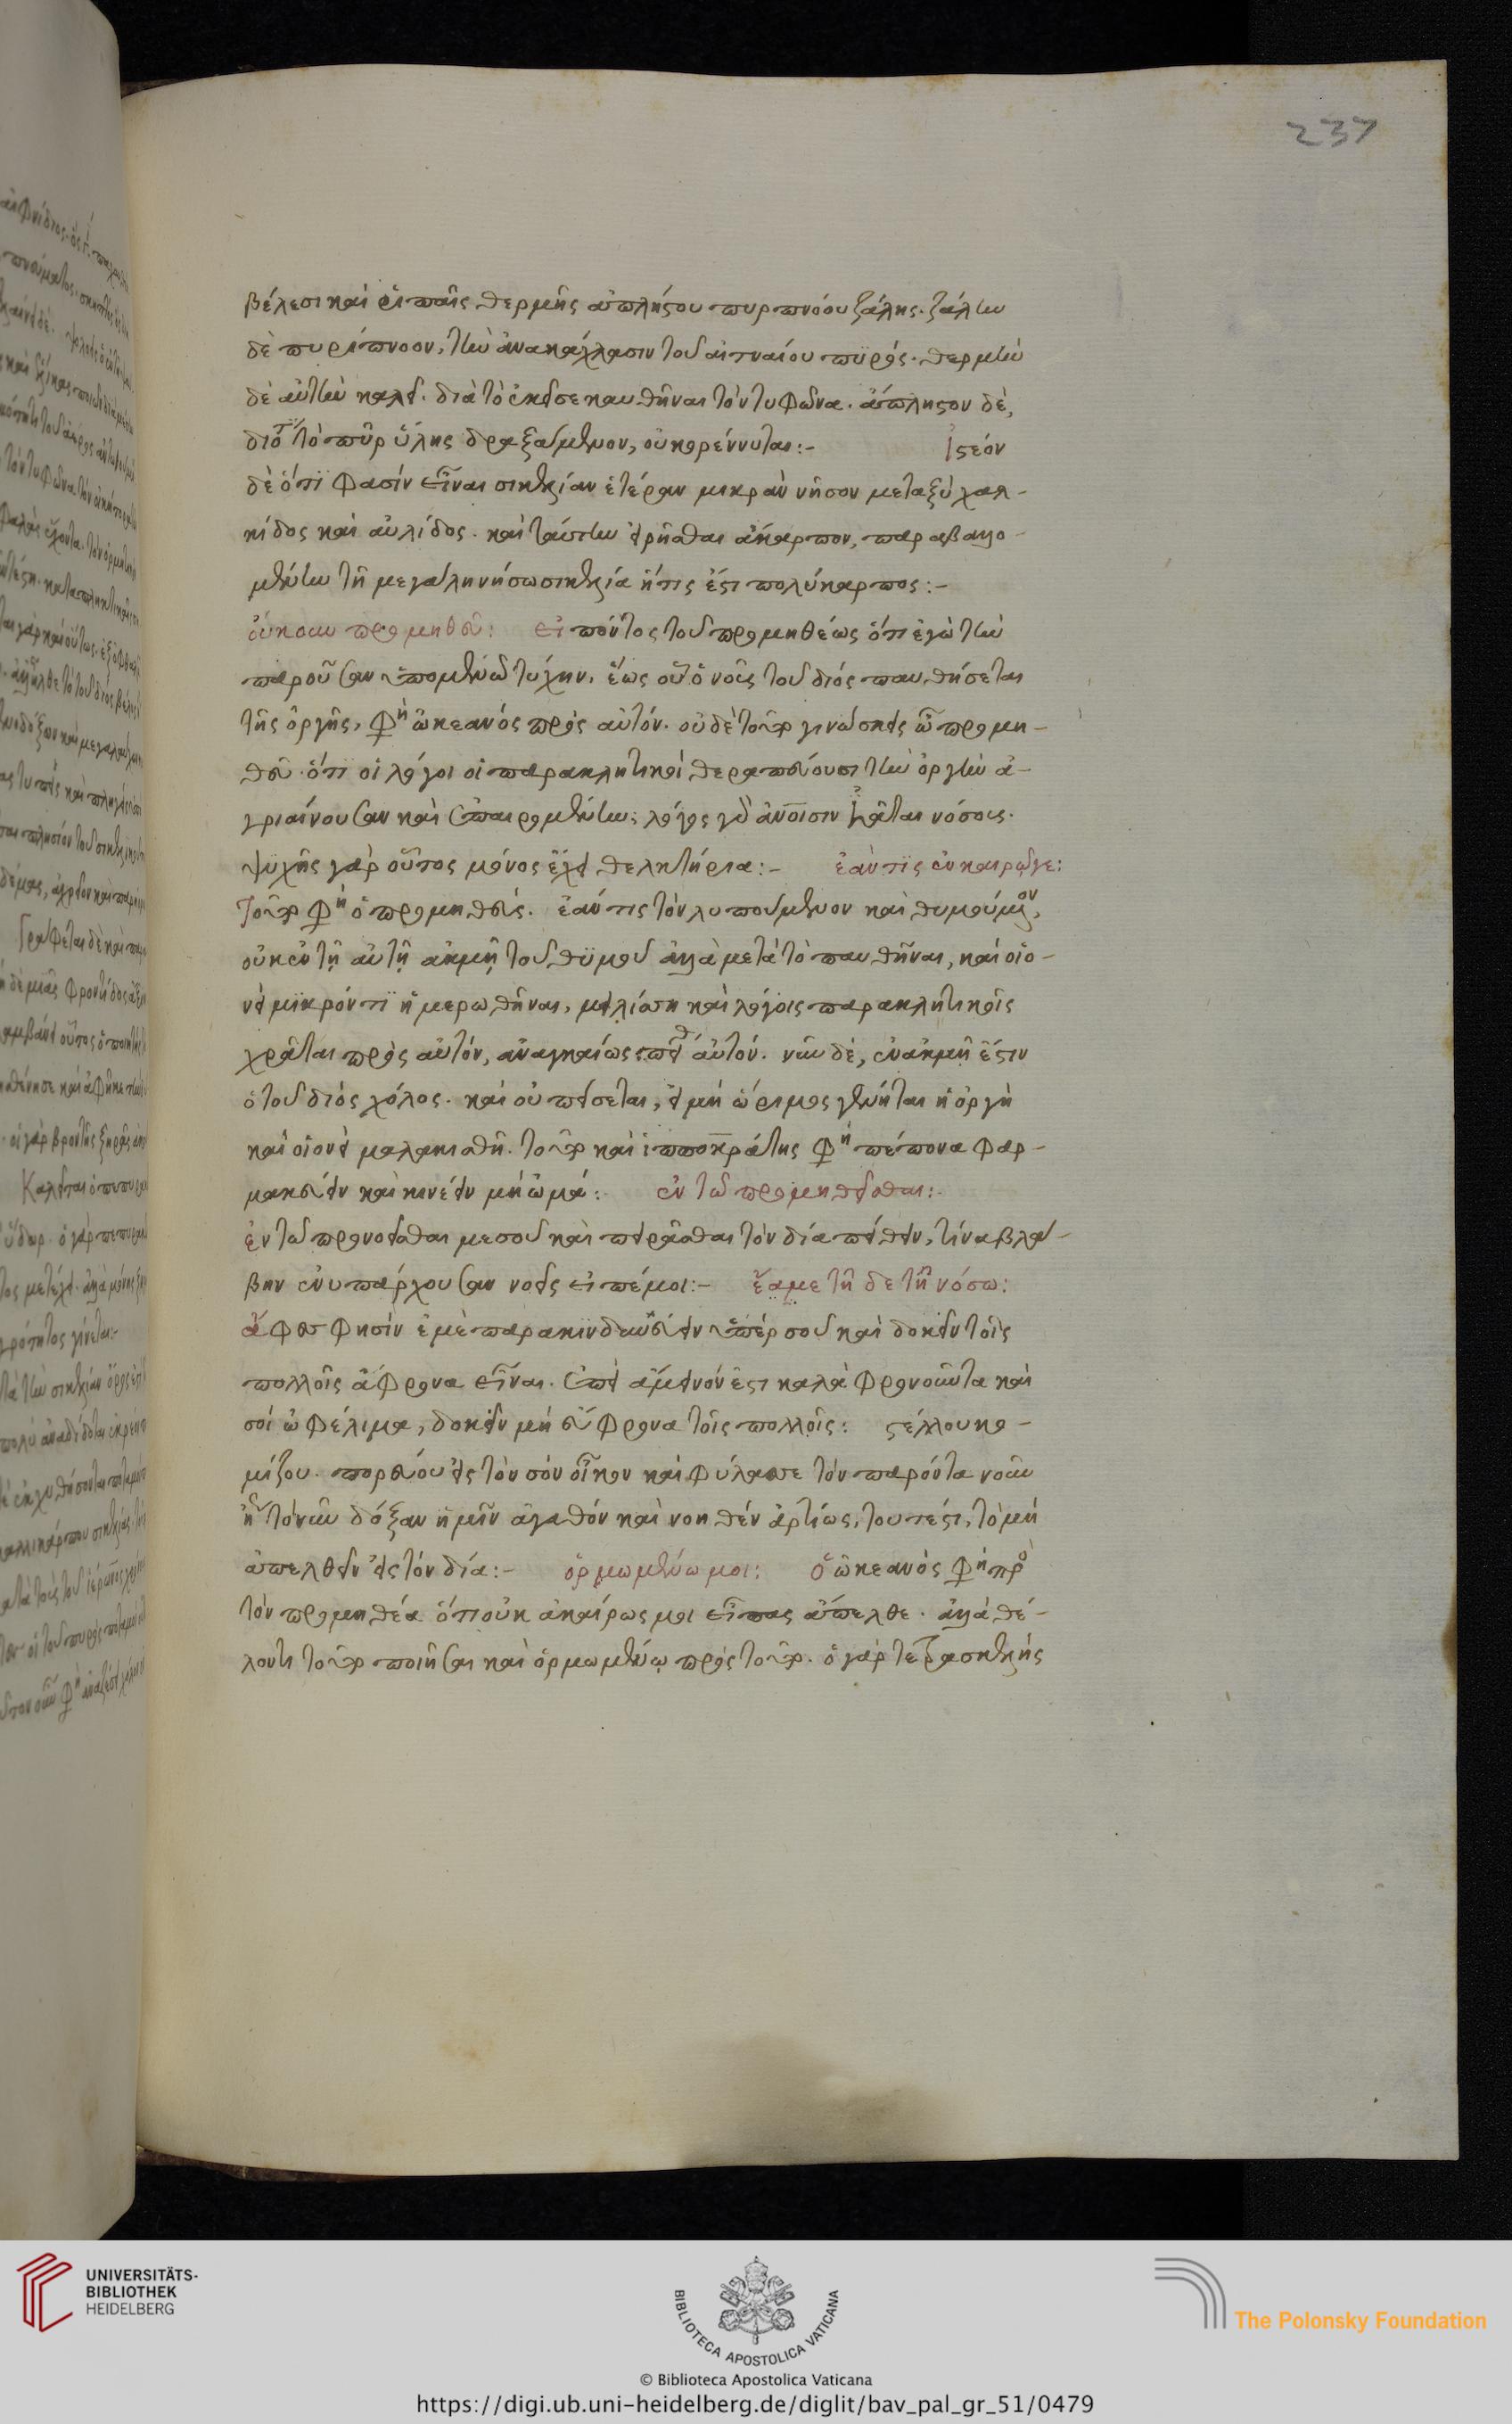 237
βέλεσι καὶ ῥιπαῖς θερμῆς ἀπλήστου πυρπνόου ζάλης. ζάλην
δὲ πυρίπνοον, τὴν ἀνακάχλασιν τοῦ αἰτναίου πϋρός. θερμὴν
δὲ αὐτὴν καλεῖ. διὰ τὸ ἐκεῖσε καυθῆναι τὸν τυφῶνα. ἄπληστον δὲ,
διότι τὸ πῦρ ὕλης δραξάμενον, οὐ κορέννυται:- Ἰστέον
δὲ ὅτι φασὶν εἶναι σικελίαν ἑτέραν μικρὰν νῆσον μεταξὺ χαλ-
κίδος καὶ αὐλίδος. καὶ ταύτην εἰρῆσθαι ἄκαρπον, παραβαλλο-
μένην τῇ μεγάλη νήσω σικελία ἥτις ἐστὶ πολύκαρπος:-
οὔκουν προμηθεῦ: εἰπόντος τοῦ προμηθέως ὅτι ἐγὼ τὴν
παροῦσαν ὑπομενῶ τύχην, ἕως οὗ ὁ νοῦς τοῦ διός παυθήσεται
τῆς ὀργῆς, φη ὠκεανός πρὸς αὐτόν. οὐδὲ τοῦτο γινώσκεις ὦ προμη-
θεῦ. ὅτι οἱ λόγοι οἱ παρακλητικοὶ θεραπεύουσι τὴν ὀργὴν ἀ-
γριαίνουσαν καὶ ἐπαιρομένην; λόγος γὰρ ἀνοισιν ἰᾶται νόσους.
ψυχῆς γὰρ οὗτος μόνος ἔχει θελκτήρια:- ἐάν τις ἐν καιρῶγε:
Τοῦτο φη ὁ προμηθεύς. ἐάν τις τὸν λυπούμενον καὶ θυμούμενον,
οὐκ ἐν τῇ αὐτῇ ἀκμῇ τοῦ θϋμοῦ ἀλλὰ μετὰ τὸ παυθῆναι, καὶ οἱο-
νεὶ μϊκρόν τϊ ἡμερωθῆναι, μειλίσση καὶ λόγοις παρακλητικοῖς
χρᾶται πρὸς αὐτόν, ἀναγκαίως πείθει αὐτόν. νῦν δὲ, ἐν ἀκμῇ ἔστιν
ὁ τοῦ διός χόλος. καὶ οὐ πείσεται, εἰ μὴ ὥριμος γένηται ἡ ὀργὴ
καὶ οἱονεὶ μαλακισθῆ. τοῦτο καὶ ἱπποκράτης φη πέπονα φαρ-
μακεύειν καὶ κινέειν μὴ ὠμά: ἐν τῶ προμηθεῖσθαι:
ἐν τῶ προνοεῖσθαι με σοῦ καὶ πειρᾶσθαι τὸν δία πείθειν, τίνα βλά-
βην ἐνυπάρχουσαν νοεῖς εἰπέ μοι:- ἔα με τῆδε τῆ νόσω:
ἄφες φησὶν ἐμὲ παρακινδυνεύειν ὑπέρ σοῦ καὶ δοκεῖν τοῖς
πολλοῖς ἄφρονα εἶναι. ἐπεὶ ἄμεινόν ἐστι καλὰ φρονοῦντα καὶ
σοὶ ὠφέλιμα, δοκεῖν μὴ εὔφρονα τοῖς πολλοῖς: στέλλου κο-
μίζου. πορεύου εἰς τὸν σὸν οἶκον καὶ φύλασσε τὸν παρόντα νοῦν
ἢ τὸ νῦν δόξαν ἡμῖν ἀγαθόν καὶ νοηθὲν ἀρτίως, τουτέστι, τὸ μὴ
ἀπελθεῖν εἰς τὸν δία:- ὁρμωμένω μοι: ὁ ὠκεανὸς φη πρὸ
τὸν προμηθέα ὅτι οὐκ ἀκαίρως μοι εἶπας ἄπελθε. ἀλλὰ θέ-
λοντι τοῦτο ποιῆσαι καὶ ὁρμωμένῳ πρὸς τοῦτο. ὁ γὰρ τετρασκελής
UNIVERSITÄTS-
BIBLIOTHEK
HEIDELBERG
BIBLIOTECA APOSTOLICA VATICANA
The Polonsky Foundation
© Biblioteca Apostolica Vaticana
https://digi.ub.uni-heidelberg.de/diglit/bav_pal_gr_51/0479